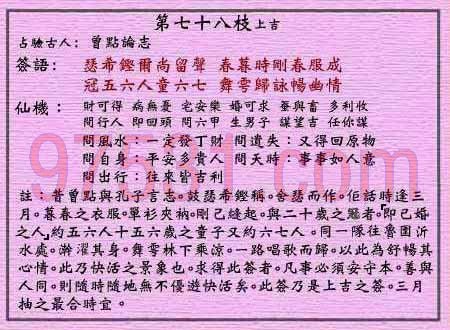 第七十八枝上吉
占驗古人：曾點論志
簽語：瑟希鏗爾尚留聲 春暮時剛春服成
冠五六人童六七 舞雩歸詠暢幽情
仙機：財可得 病無憂 宅安樂 婚可求 蚕與畜 多利收
問行人 即回頭 問六甲 生男子 謀望吉 任你謀
問風水：一定發丁財 問遺失：又得回原物
問自身：平安多貴人 問天時：事事如人意
問出行：往來皆吉利
註：昔曾點與孔子言志。鼓瑟希鏗稱。舍瑟而作。佢話時逢三
月。暮春之衣服。單衫夾衲。剛已縫起。與二十歲之冠者。即已婚
之人，約五六人十五六歲之童子又約六七人。同一隊往魯國沂
水處。澣濯其身。舞雩林下乘涼。一路唱歌而歸。以此為舒暢其
心情。此乃快活之景象也。求得此簽者。凡事必須安守本。善與
人同。則隨時隨地無不優遊快活矣。此簽乃是上吉之簽。三月
抽之最合時宜。